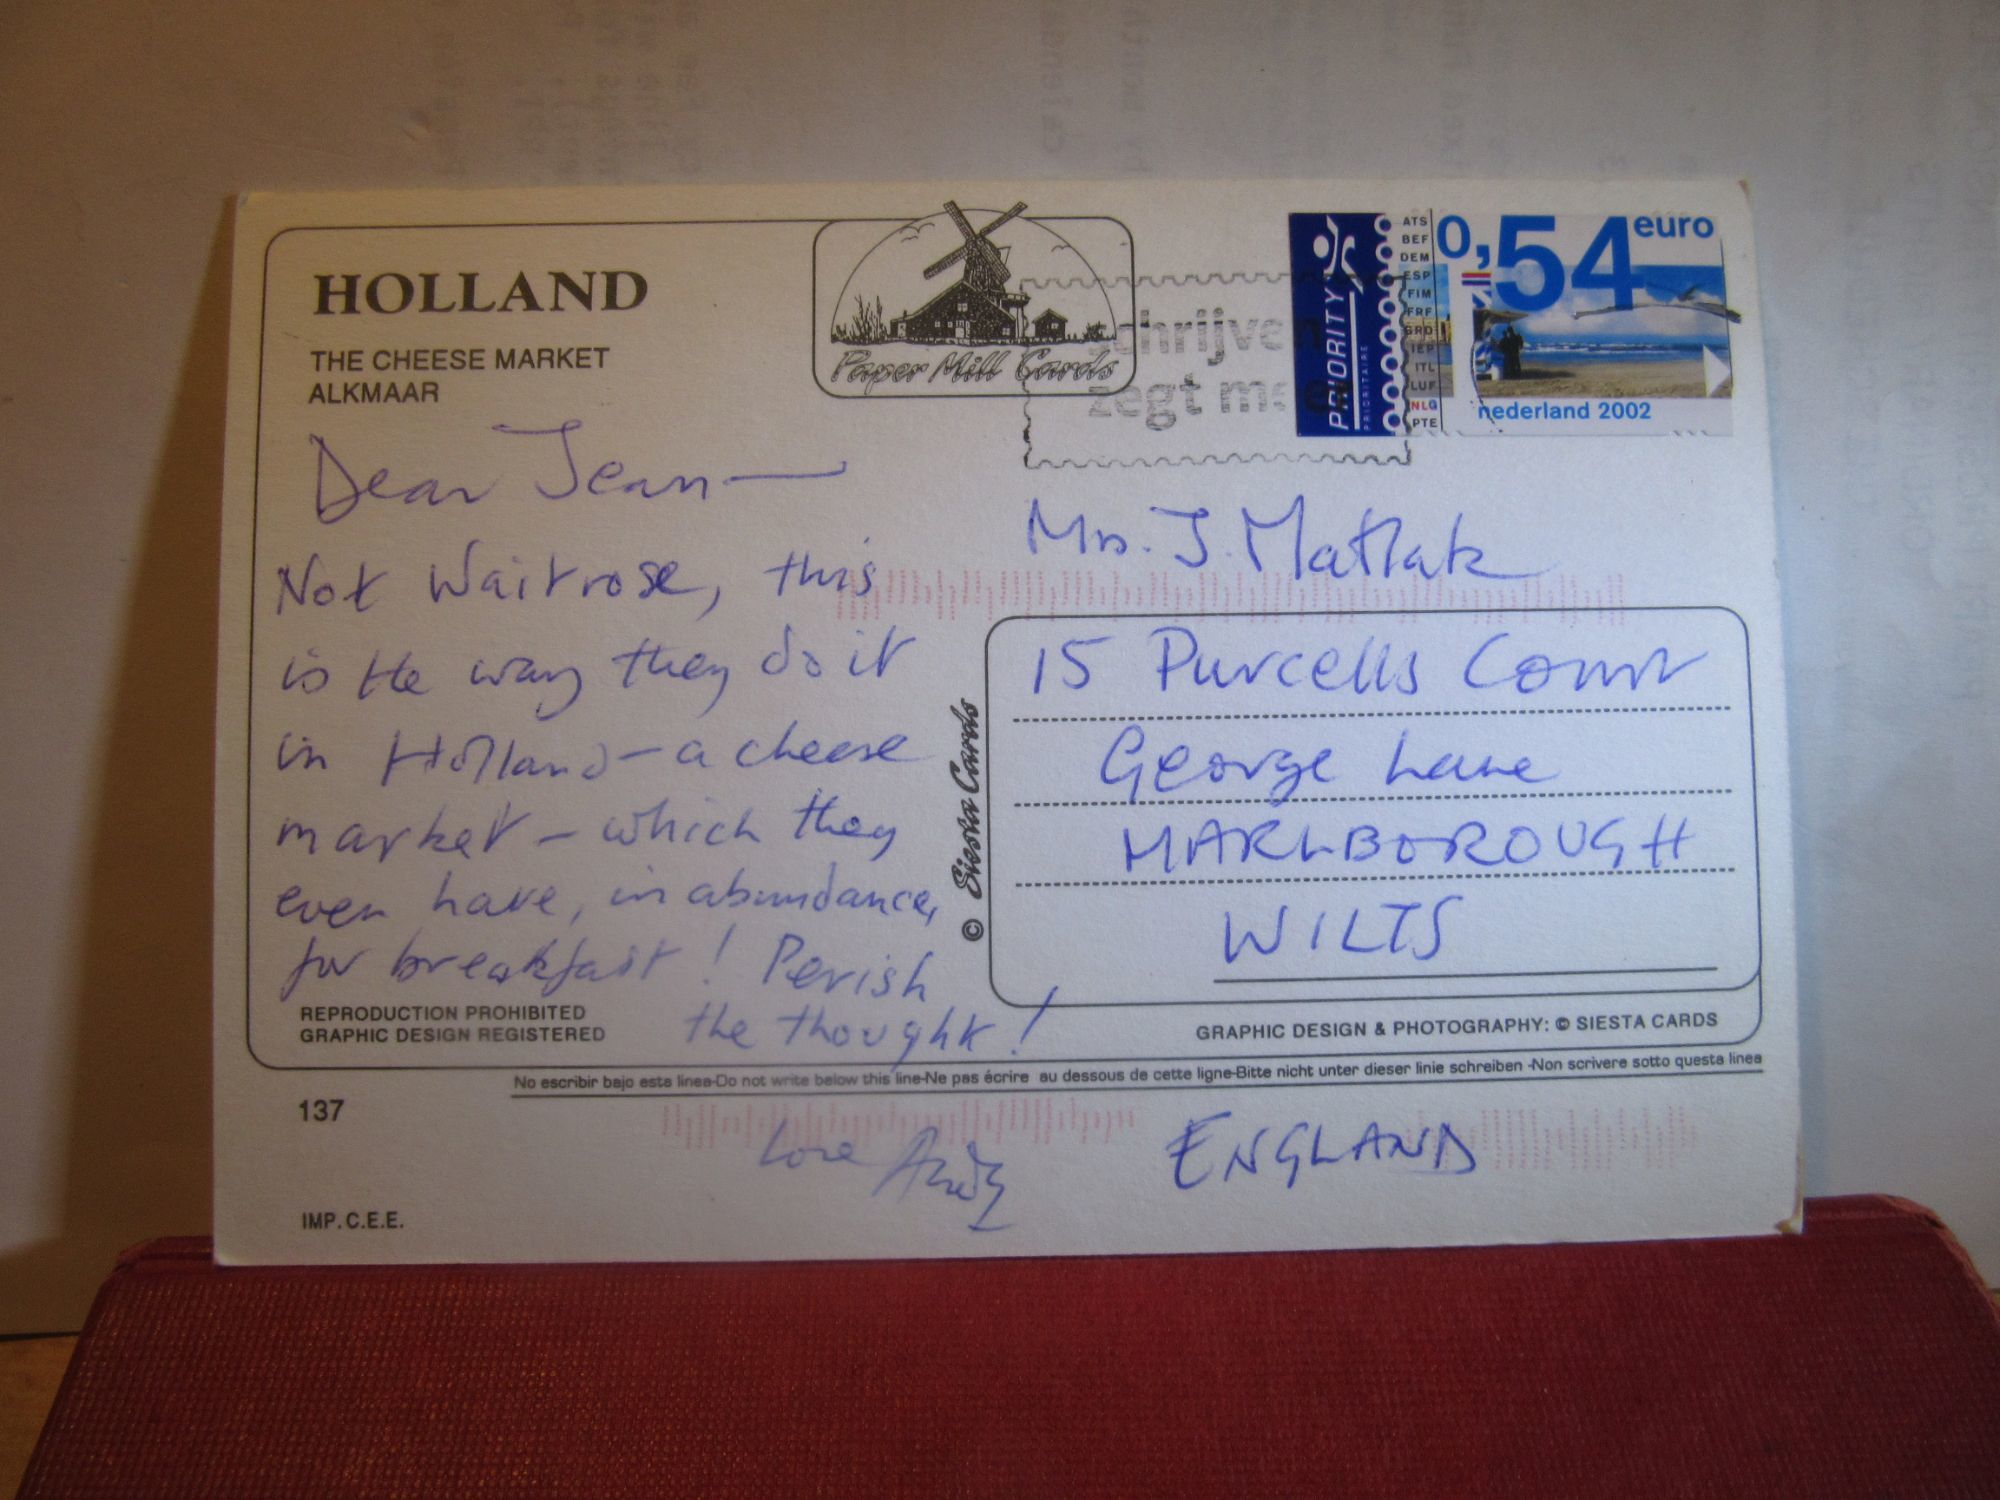 HOLLAND
THE CHEESE MARKET
ALKMAAR
Paper Mill Cards
PRIORITY
PRIORITAIRE
ATS
BEF
DEM
ESP
FIM
FRF
GRD
IEP
ITL
LUF
NLG
PTE
0,54 euro
nederland 2002
chrijve
zegt m
Dear Jean —
Not Waitrose, this
is the way they do it
in Holland – a cheese
market – which they
even have, in abundance,
for breakfast! Perish
the thought!
Love Andy
Mrs. J. Matlak
15 Purcells Court
George Lane
MARLBOROUGH
WILTS
ENGLAND
© Siesta Cards
REPRODUCTION PROHIBITED
GRAPHIC DESIGN REGISTERED
GRAPHIC DESIGN & PHOTOGRAPHY: © SIESTA CARDS
No escribir bajo esta linea-Do not write below this line-Ne pas écrire au dessous de cette ligne-Bitte nicht unter dieser linie schreiben -Non scrivere sotto questa linea
137
IMP. C.E.E.